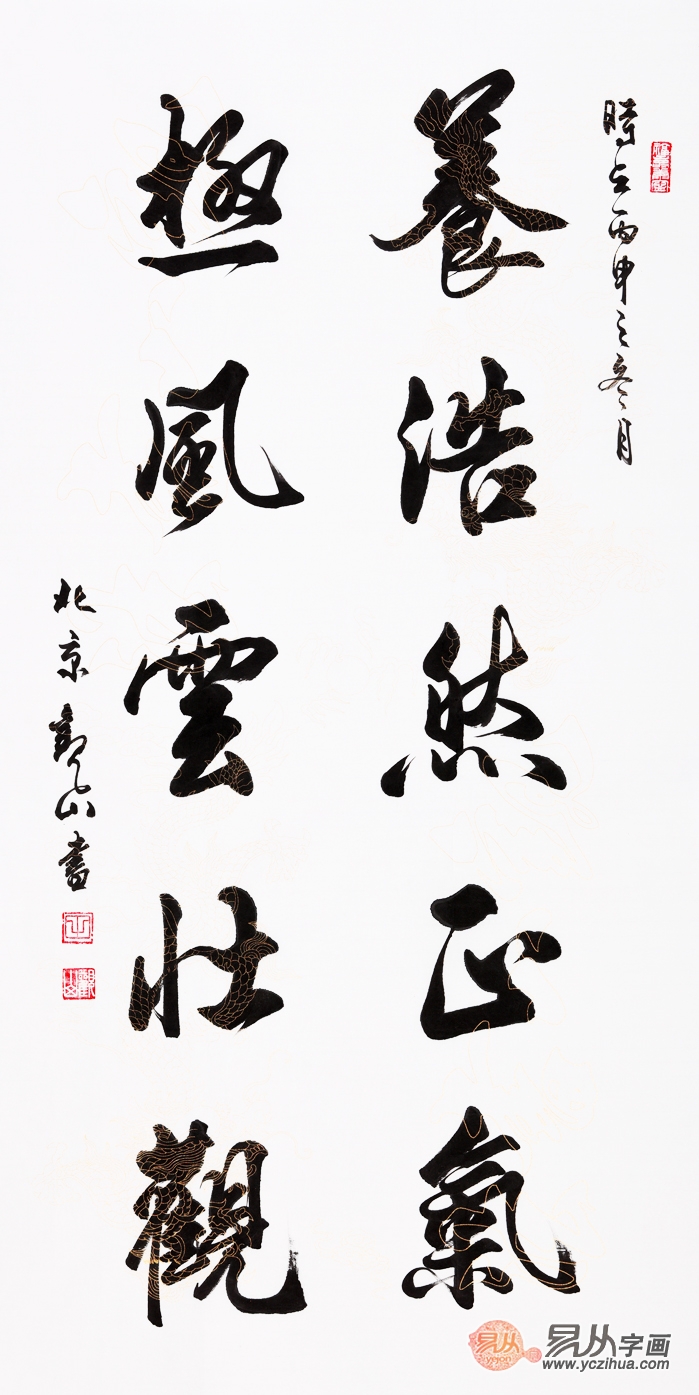 時在丙申之冬月
養浩然正氣
極風雲壯觀
北京觀山書
易从
yeion
易从字画
www.yczihua.com